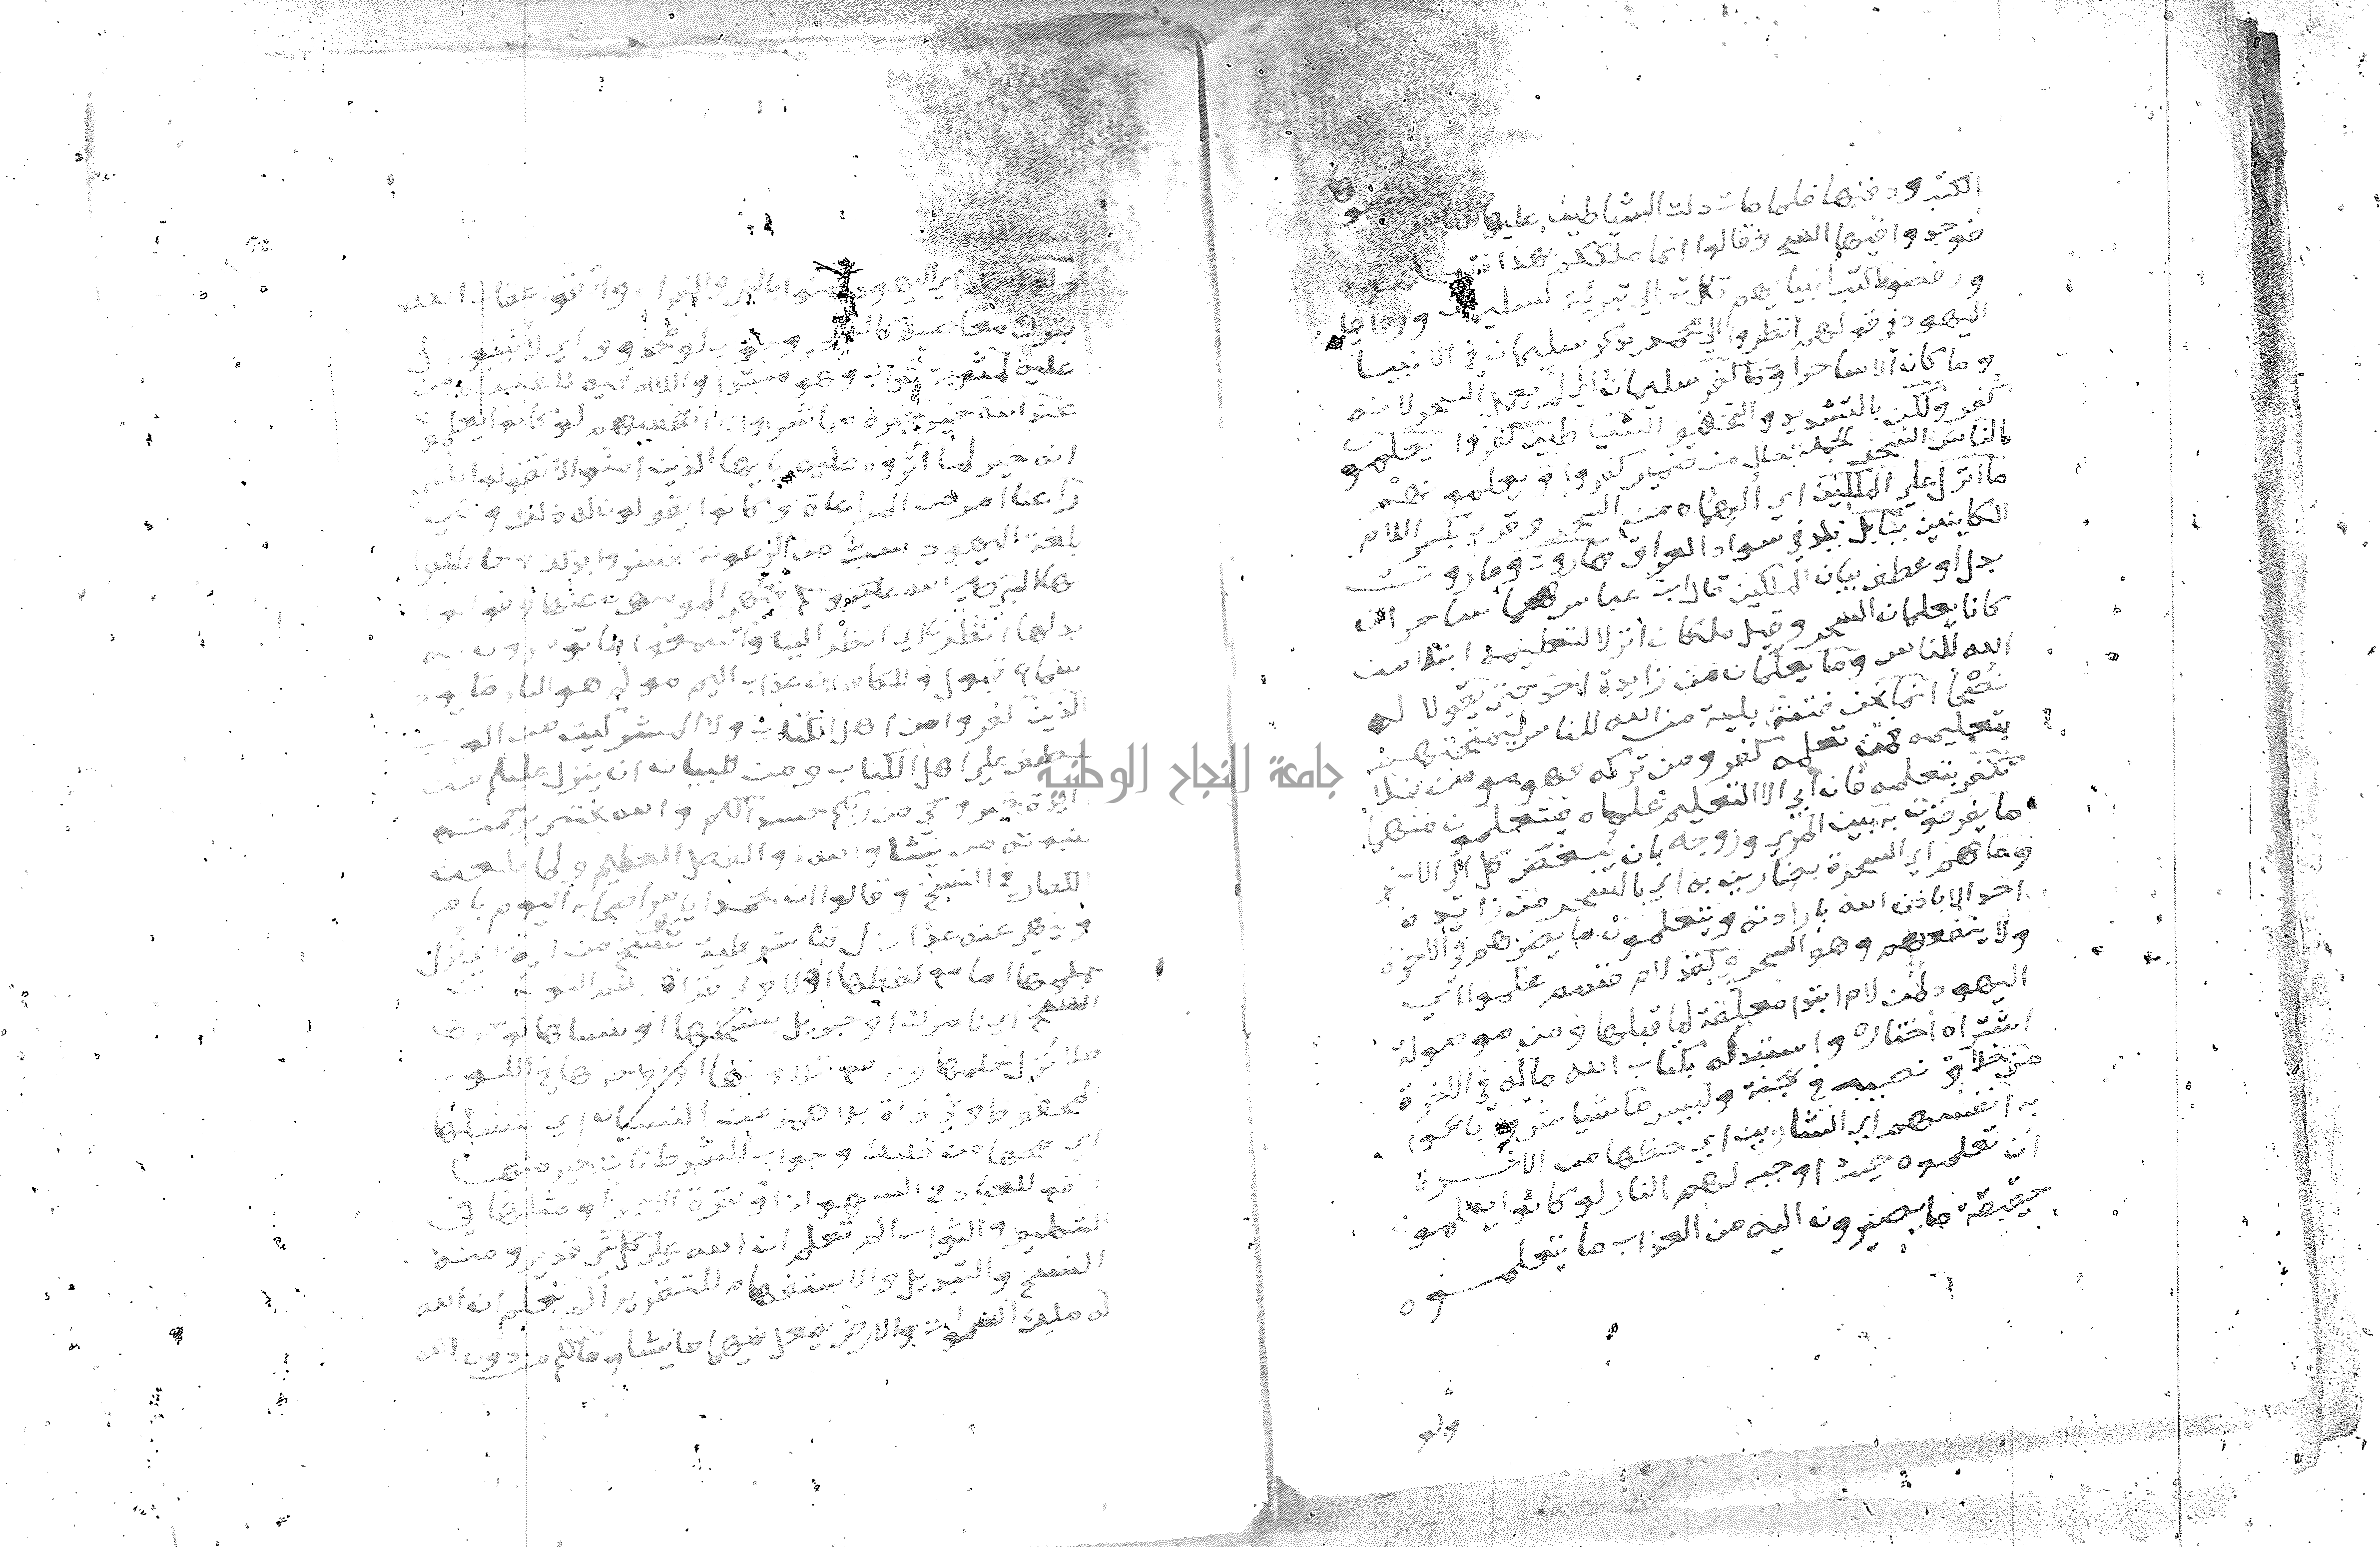 الكتب ودفنها فلما مات دلت الشياطين عليها الناس فاستخرجوها
فوجدوا فيها السحر فقالوا انما ملككم بهذا فتعلموه
ورفضوا كتب انبيايهم قال تعالى تبرئة لسليمان وردا على
اليهود في قولهم انظروا الى محمد يذكر سليمان في الانبيا
وما كان الا ساحرا وما كفر سليمان اي لم يعمل السحر لانه
كفر ولكن بالتشديد والتخفيف الشياطين كفروا يعلمون
الناس السحر الجملة حال من ضمير كفروا و يعلمونهم
ما انزل على الملكين اي الهماه من السحر وقري بكسر اللام
الكاينين ببابل بلد في سواد العراق هاروت وماروت
بدل او عطف بيان للملكين قال ابن عباس هما ساحران
كانا يعلمان السحر وقيل ملكان انزلا لتعليمه ابتلا من
الله للناس وما يعلمان من زايدة احد حتى يقولا له
نصحا انما نحن فتنة بلية من الله للناس ليمتحنهم
بتعليمه فمن تعلمه كفر ومن تركه فهو مومن فلا
تكفر بتعلمه فان ابى الا التعليم علماه فيتعلمون منهما
ما يفرقون به بين المرء وزوجه بان يبغض كل الى الاخر
وما هم اي السحرة بضارين به اي بالسحر من زايدة
احد الا باذن الله بارادته ويتعلمون ما يضرهم في الاخرة
ولا ينفعهم وهو السحر ولقد لام قسم علموا اي
اليهود لمن لام ابتدا معلقة لما قبلها ومن موصولة
اشتراه اختاره واستبدله بكتاب الله ماله في الاخرة
من خلاق نصيب في الجنة ولبيس ما شيا شروا باعوا
به انفسهم اي الشارين اي حظها من الاخرة
ان تعلموه حيث اوجب لهم النار لو كانوا يعلمون
حقيقة ما يصيرون اليه من العذاب ما تعلموه
ولو
ولو انهم اي اليهود امنوا بالنبي والقران واتقوا عقاب الله
بترك معاصيه كالسحر وجواب لو محذوف اي لاثيبوا دل
عليه لمثوبة ثواب وهو مبتدا واللام فيه للقسم من
عند الله خير خبره مما شروا به انفسهم لو كانوا يعلمون
انه خير لما اثروه عليه يايها الذين امنوا لا تقولوا للنبي
راعنا امر من المراعاة وكانوا يقولون له ذلك وهي
بلغة اليهود سب من الرعونة فسروا بذلك وخاطبوا
بها النبي صلى الله عليه وسلم فنهي المومنون عنها وقولوا
بدلها انظرنا اي انظر الينا واسمعوا ما تومرون به
سماع قبول وللكافرين عذاب اليم مولم هو النار ما يود
الذين كفروا من اهل الكتاب ولا المشركين من العرب
عطف على اهل الكتاب ومن للبيان ان ينزل عليكم من
زايدة خير وحي من ربكم حسدا لكم والله يختص برحمته
نبوته من يشا والله ذو الفضل العظيم ولما طعن
الكفار في النسخ وقالوا ان محمدا يامر اصحابه اليوم بامر
وينهى عنه غدا نزل ما شرطية ننسخ من اية اي نزل
حكمها اما مع لفظها اولا وفي قراة بضم النون من
انسخ اي نامرك او جبريل بنسخها او ننساها نوخرها
فلا نزل حكمها ونرفع تلاوتها او نوخرها في اللوح
المحفوظ وفي قراة بلا همز من النسيان اي ننسكها
اي نمحها من قلبك وجواب الشرط نات بخير منها
انفع للعباد في السهولة او كثرة الاجر او مثلها في
التكليف والثواب الم تعلم ان الله على كل شي قدير ومنه
النسخ والتبديل والاستفهام للتقرير الم تعلم ان الله
له ملك السموات والارض يفعل فيهما ما يشا وما لكم من دون الله
جامعة النجاح الوطنية